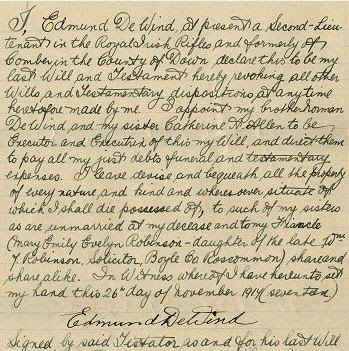 I, Edmund De Wind, at present a Second-Lieu-
tenant in the Royal Irish Rifles and formerly of
Comber in the County of Down declare this to be my
last Will and Testament hereby revoking all other
Wills and Testamentary dispositions at any time
heretofore made by me. I appoint my brother Norman
De Wind and my sister Catherine A. Allen to be
Executor and Executrix of this my Will, and direct them
to pay all my just debts funeral and testamentary
expenses. I leave devise and bequeath all the property
of every nature and kind and wheresoever situate of
which I shall die possessed of, to such of my sisters
as are unmarried at my decease and to my Fiancée
(Mary Emily Evelyn Robinson - daughter of the late Wm
J. Robinson, Solicitor Boyle Co Roscommon) share and
share alike. In Witness whereof I have hereunto set
my hand this 26th day of November 1917 (seventeen)
Edmund De Wind
Signed by said Testator as and for his last Will